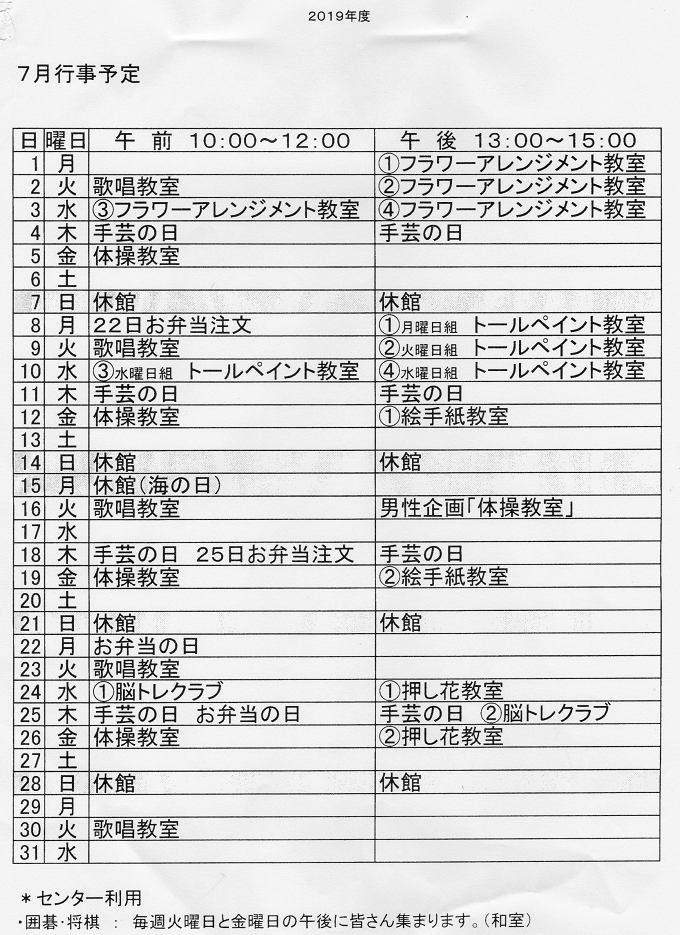 2019年度
７月行事予定
日 曜日 午 前 10:00～12:00 午 後 13:00～15:00
1 月 ①フラワーアレンジメント教室
2 火 歌唱教室 ②フラワーアレンジメント教室
3 水 ③フラワーアレンジメント教室 ④フラワーアレンジメント教室
4 木 手芸の日 手芸の日
5 金 体操教室
6 土
7 日 休館 休館
8 月 ２２日お弁当注文 ①月曜日組 トールペイント教室
9 火 歌唱教室 ②火曜日組 トールペイント教室
10 水 ③水曜日組 トールペイント教室 ④水曜日組 トールペイント教室
11 木 手芸の日 手芸の日
12 金 体操教室 ①絵手紙教室
13 土
14 日 休館 休館
15 月 休館（海の日）
16 火 歌唱教室 男性企画「体操教室」
17 水
18 木 手芸の日 ２５日お弁当注文 手芸の日
19 金 体操教室 ②絵手紙教室
20 土
21 日 休館 休館
22 月 お弁当の日
23 火 歌唱教室
24 水 ①脳トレクラブ ①押し花教室
25 木 手芸の日 お弁当の日 手芸の日 ②脳トレクラブ
26 金 体操教室 ②押し花教室
27 土
28 日 休館 休館
29 月
30 火 歌唱教室
31 水
＊センター利用
・囲碁・将棋 ： 毎週火曜日と金曜日の午後に皆さん集まります。（和室）